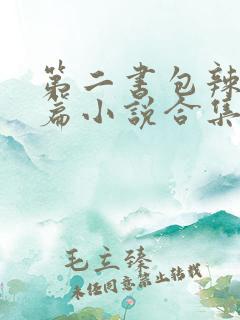 第二书包辣
篇小说合集
毛立臻
未经同意禁止转载